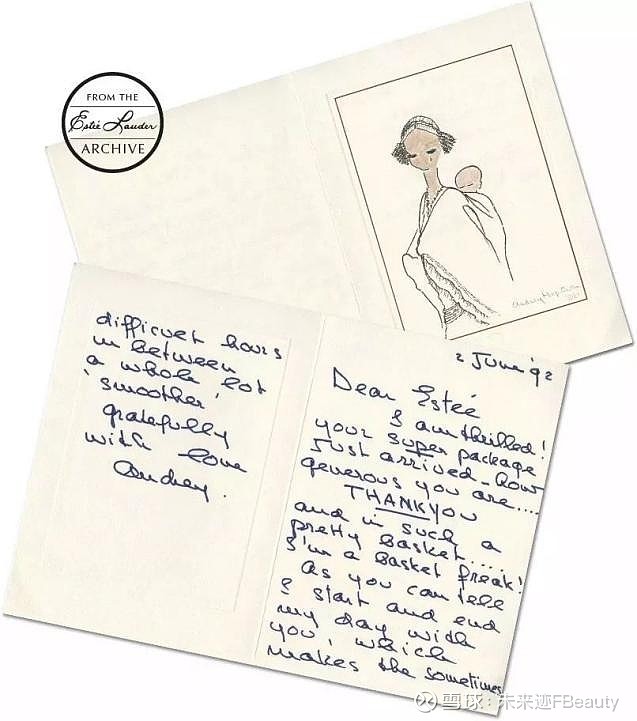 FROM THE
Estée Lauder
ARCHIVE
Audrey Hepburn
2 June '92
Dear Estée
I am thrilled!
your super package
Just arrived - How
generous you are....
THANK YOU
and in such a
pretty basket.....
I'm a Basket freak!
As you can tell
I start and end
my day with
you, which
makes the sometimes
difficult hours
in between
a whole lot
'smoother'
gratefully
with love
Audrey.
雪球：未来迹FBeauty